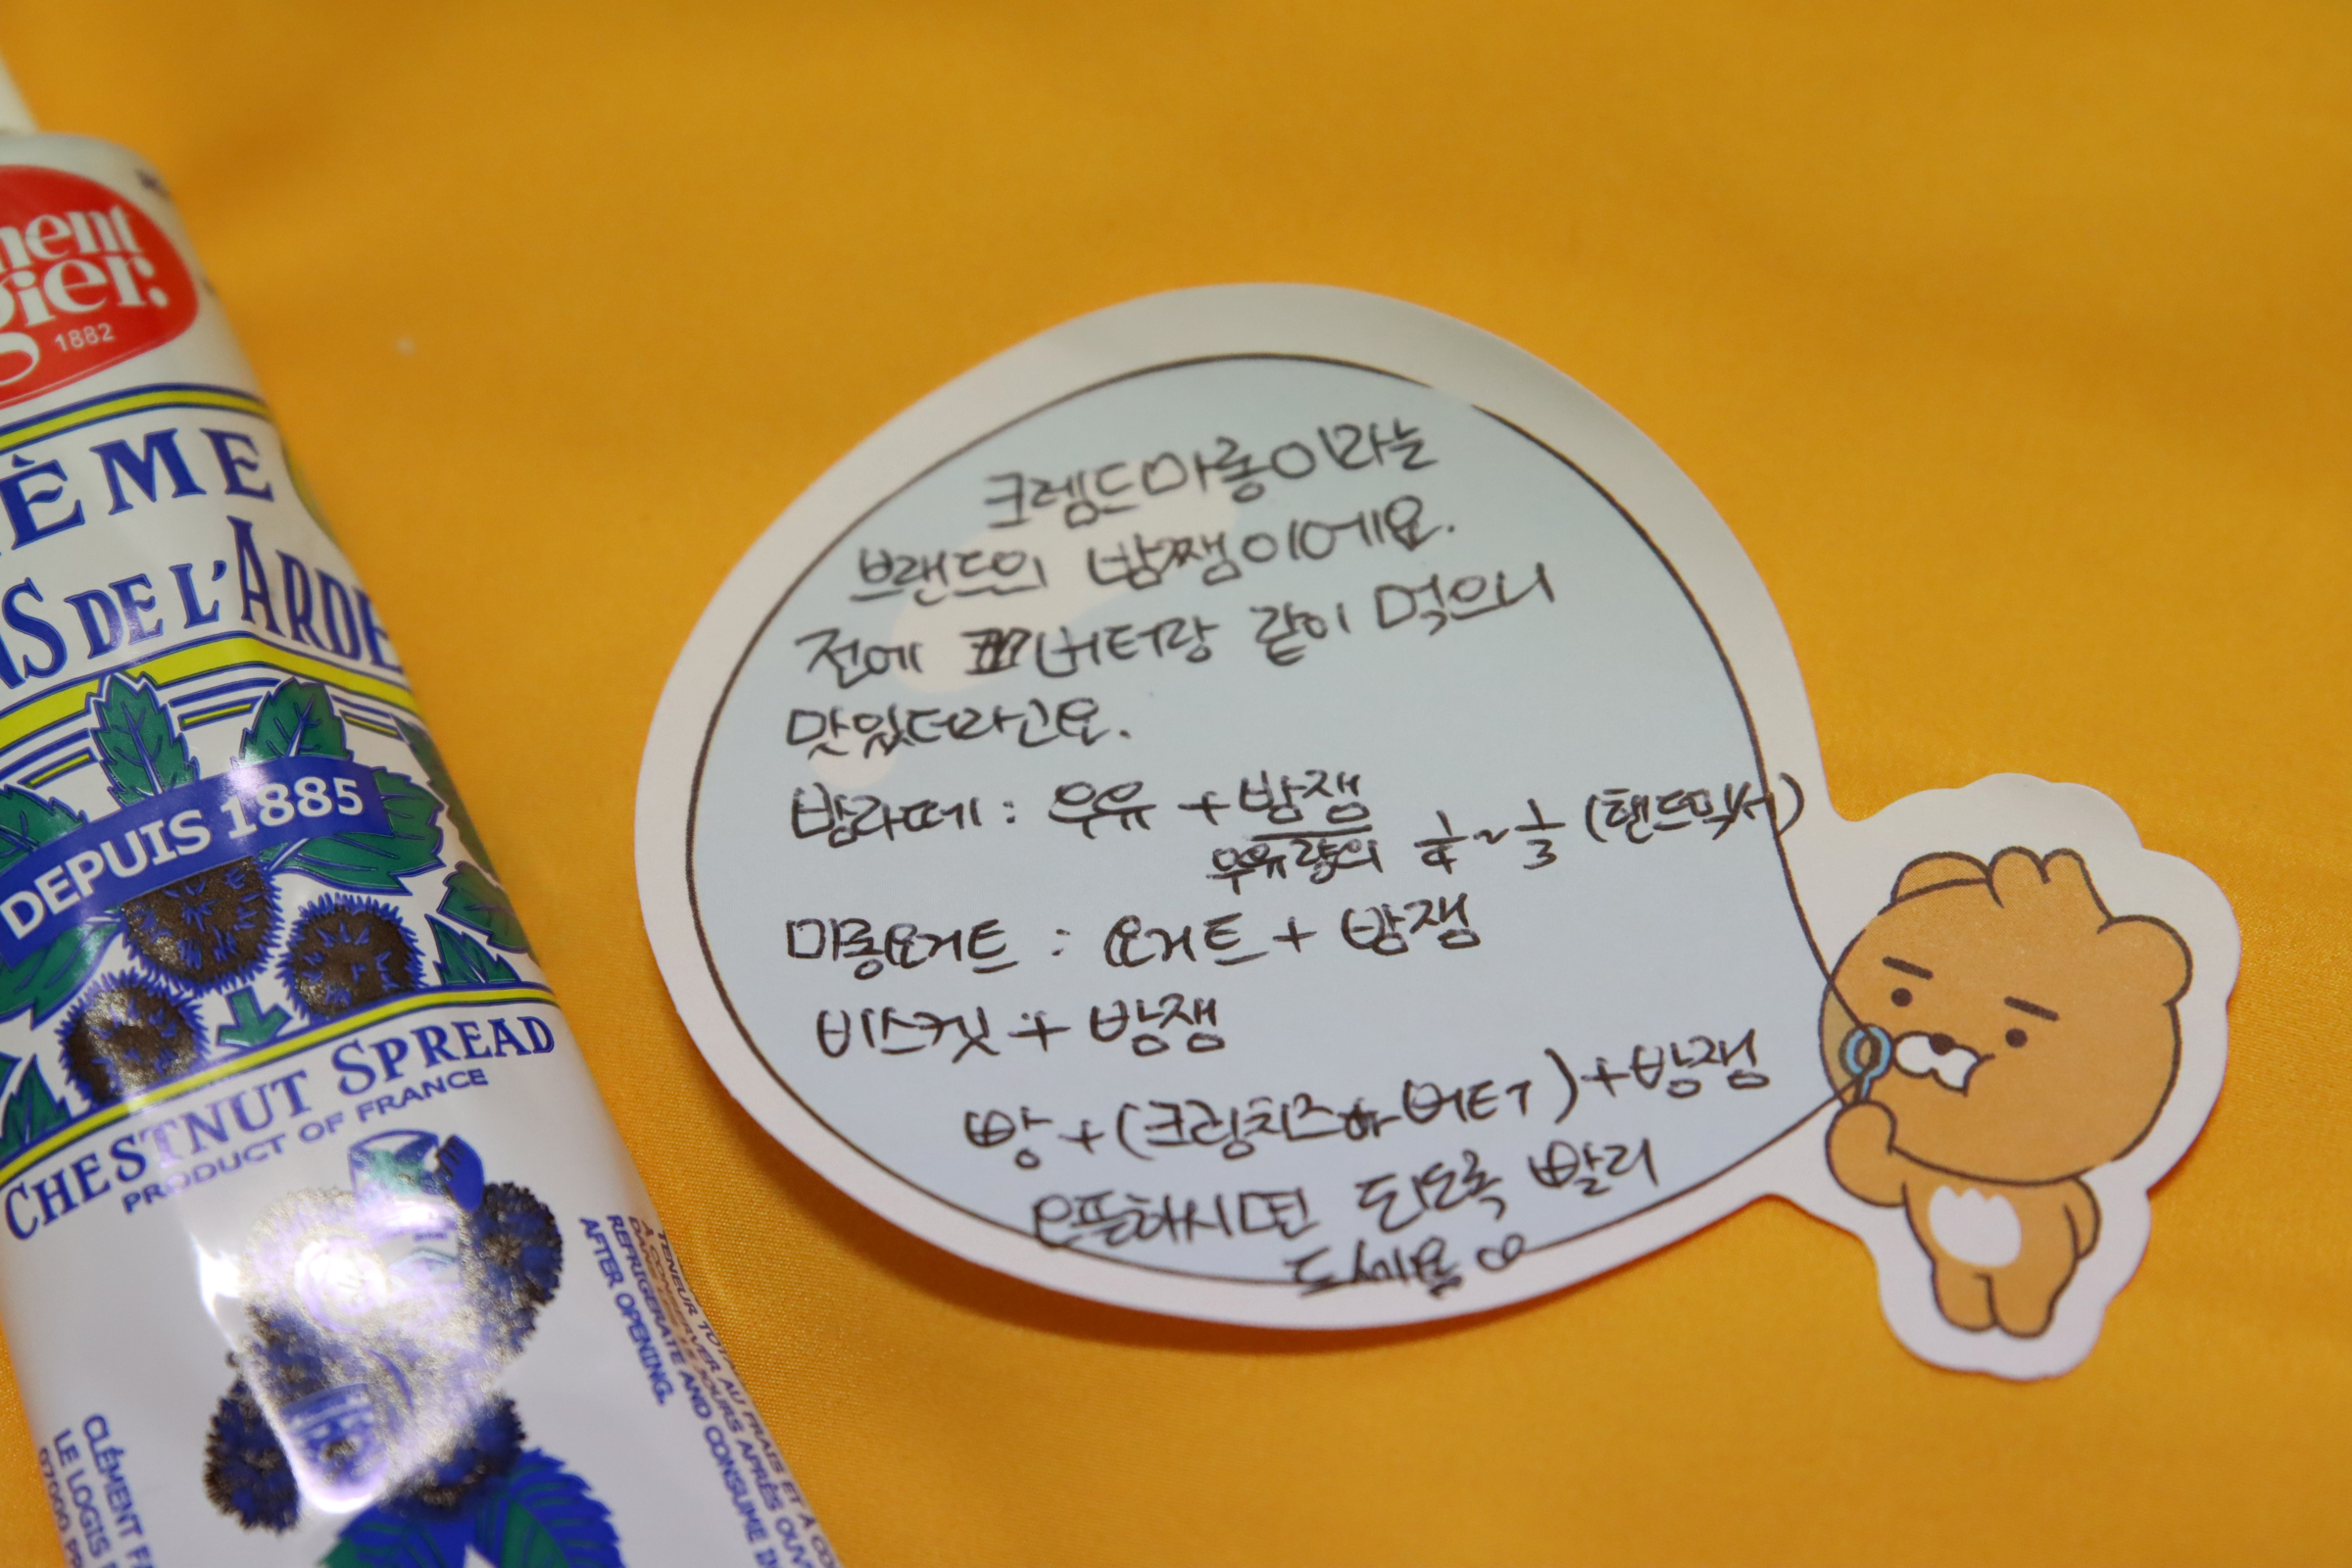 ment
gier,
1882
ÈME
NS DE L'ARDE
DEPUIS 1885
CHESTNUT SPREAD
PRODUCT OF FRANCE
TENEUR TOT
À CONSERVER AU FRAIS ET À CO
DANS LES JOURS APRÈS OUV
REFRIGERATE AND CONSUME
AFTER OPENING.
CLÉMENT F
LE LOGIS
07000 PR
크렘드마롱이라는
브랜드의 밤쨈이에요.
전에 버터랑 같이 먹으니
맛있더라고요.
밤라떼 : 우유 + 밤잼
우유량의 1/4 ~ 1/3 (핸드믹서)
마롱요거트 : 요거트 + 밤잼
비스킷 + 밤잼
빵 + (크림치즈 버터) + 밤잼
오픈하시면 되도록 빨리
드세요